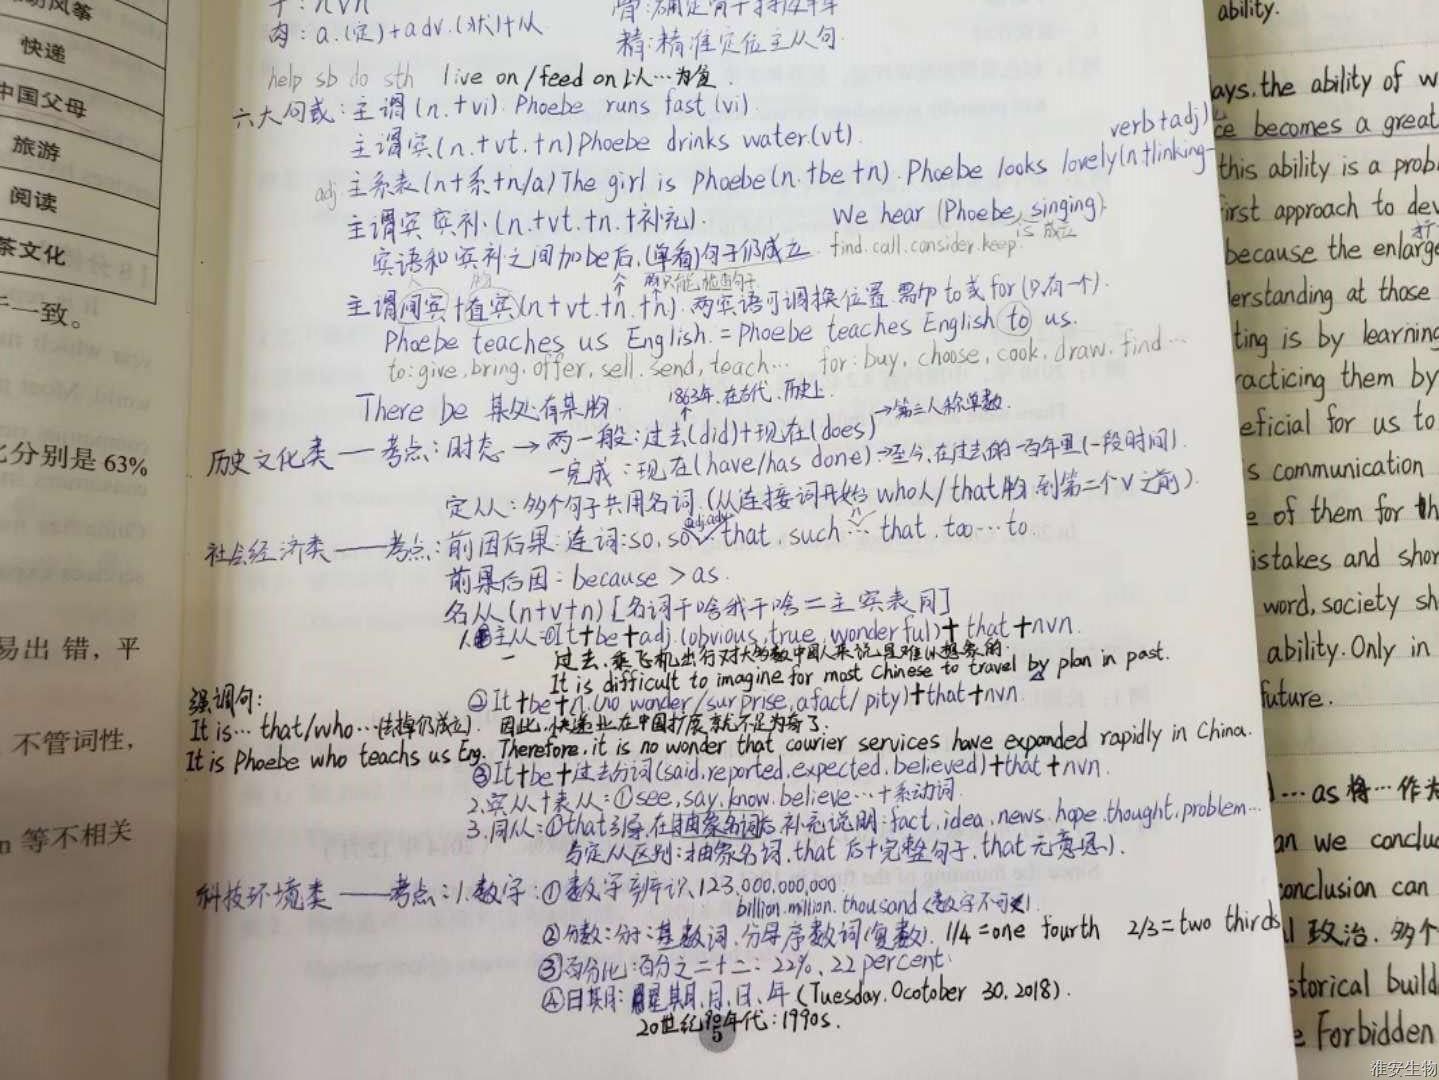 干：nvn
肉：a.(定)+adv.(状)+从
精：精准定位主从句.
help sb do sth live on/feed on 以…为食
六大句式：主谓(n.+vi). Phoebe runs fast (vi).
主谓宾(n.+vt.+n) Phoebe drinks water.(vt).
verb+adj)
adj 主系表(n+系+n/a) The girl is Phoebe(n.+be+n). Phoebe looks lovely(n+linking-
主谓宾宾补.(n.+vt.+n.+补充). We hear (Phoebe singing).
is 成立
宾语和宾补之间加be后,(单看)句子仍成立. find.call.consider.keep.
主谓间宾+直宾(n+vt.+n+n).两宾语可调换位置.需加to或for(只有一个).
Phoebe teaches us English. = Phoebe teaches English to us.
to: give, bring. offer, sell. send, teach… for: buy, choose, cook, draw. find…
There be 某处有某物. 1863年.在古代.历史上.
→第三人称单数.
历史文化类——考点：时态→两一般：过去(did)+现在(does)
一完成：现在(have/has done)→至今,在过去的一百年里(一段时间).
定从：多个句子共用名词.(从连接词开始 who人/that物 到第二个v之前).
adj adv n
社会经济类——考点：前因后果：连词:so, so…that, such…that, too…to
前果后因：because > as.
名从(n+v+n)[名词干啥我干啥=主宾表同]
主从：①It+be+adj.(obvious,true,wonderful)+that+nvn.
过去,乘飞机出行对大多数中国人来说是难以想象的.
It is difficult to imagine for most Chinese to travel by plan in past.
②It+be+n.(no wonder/surprise,a fact/pity)+that+nvn
强调句:
It is… that/who…(去掉仍成立). 因此,快递业在中国扩展就不足为奇了.
It is Phoebe who teachs us Eng. Therefore, it is no wonder that courier services have expanded rapidly in China.
③It+be+过去分词(said,reported,expected,believed)+that+nvn.
2.宾从+表从：①see, say, know, believe…+系动词
3.同从：①that引导,在抽象名词后,补充说明:fact, idea, news, hope, thought, problem…
与定从区别：抽象名词,that后+完整句子,that无意思).
科技环境类——考点：1.数字：①数字辨识,123,000,000,000
billion.million.thousand
②分数：分子：基数词,分母序数词(复数). 1/4=one fourth 2/3=two thirds
③百分比：百分之二十二：22%、22 percent.
④日期：星期,月,日,年 (Tuesday, Ocotober 30, 2018).
20世纪90年代：1990s.
5
快递
中国父母
旅游
阅读
茶文化
一致。
分别是 63%
易出错，平
不管词性，
n 等不相关
ability.
ays, the ability of w
ce becomes a great
this ability is a prob
irst approach to dev
because the enlarge
erstanding at those
ting is by learning
racticing them by
eficial for us to
s communication
e of them for th
istakes and shor
word, society sh
ability. Only in
future.
…as 将…作为
an we conclud
conclusion can
政治.多个
storical build
e Forbidden
淮安生物